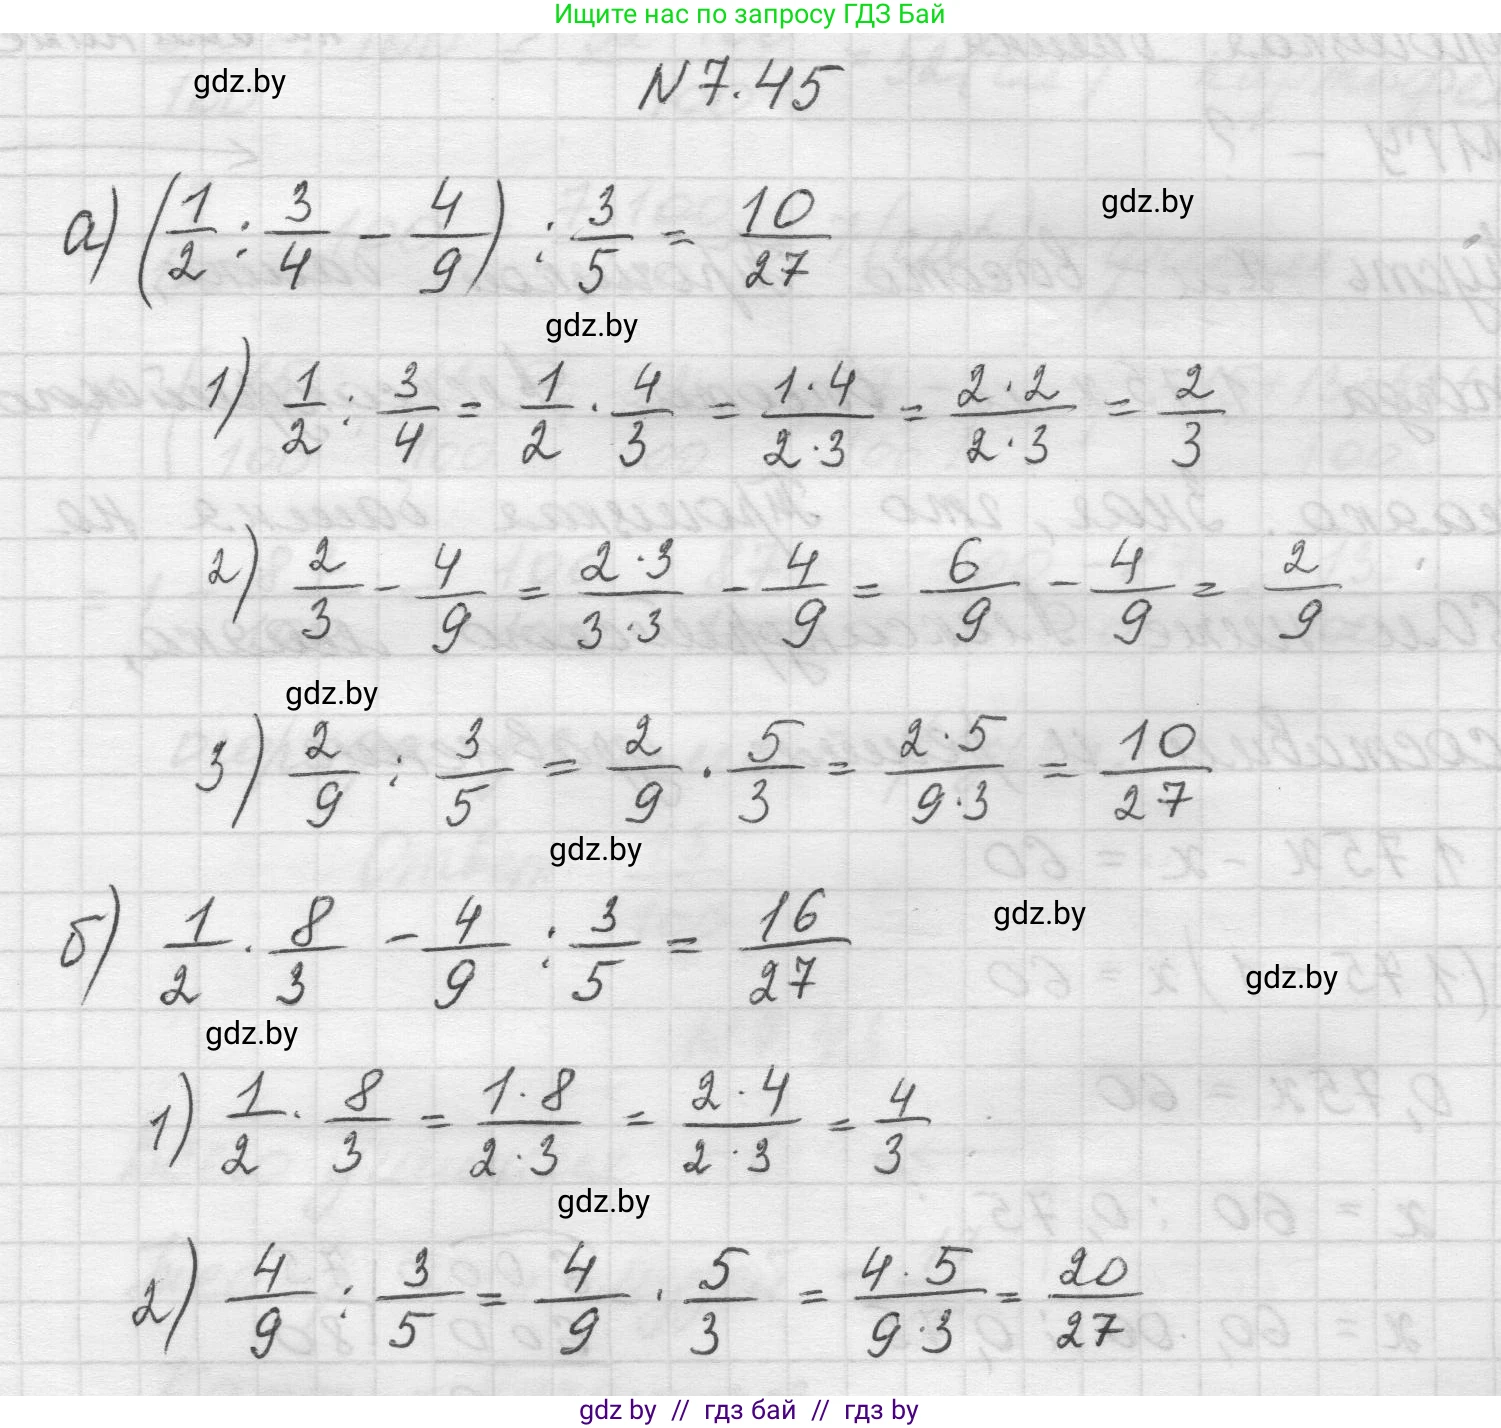 Ищите нас по запросу ГДЗ Бай
gdz.by
N 7.45
а) (1/2 : 3/4 - 4/9) : 3/5 = 10/27
gdz.by
gdz.by
1) 1/2 : 3/4 = 1/2 · 4/3 = 1·4/2·3 = 2·2/2·3 = 2/3
2) 2/3 - 4/9 = 2·3/3·3 - 4/9 = 6/9 - 4/9 = 2/9
gdz.by
3) 2/9 : 3/5 = 2/9 · 5/3 = 2·5/9·3 = 10/27
gdz.by
б) 1/2 · 8/3 - 4/9 : 3/5 = 16/27
gdz.by
gdz.by
gdz.by
1) 1/2 · 8/3 = 1·8/2·3 = 2·4/2·3 = 4/3
gdz.by
2) 4/9 : 3/5 = 4/9 · 5/3 = 4·5/9·3 = 20/27
gdz by // гдз бай // гдз by